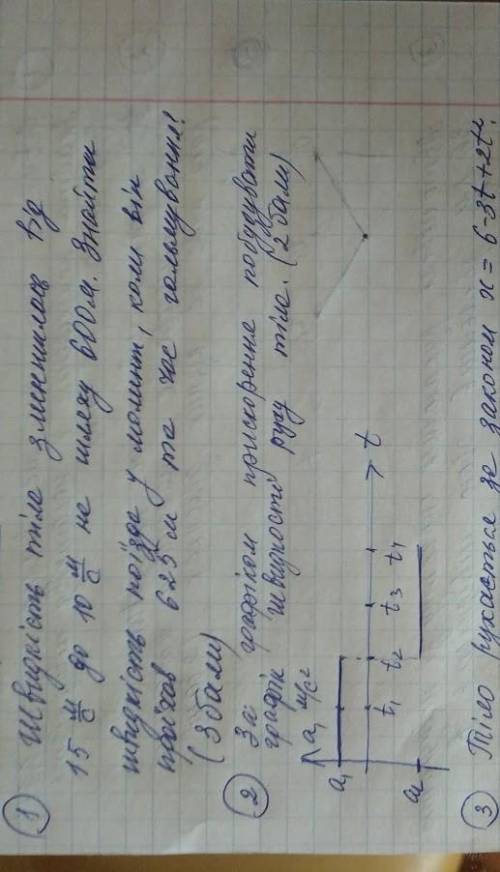 ① Швидкість тіла зменшилась від
15 м/с до 10 м/с на шляху 600 м. Знайти
швидкість поїзда у момент, коли він
проїхав 625 м та час гальмування!
(3 бали)
② За графіком прискорення побудувати
графік швидкості руху тіла. (2 бали)
a, м/с²
a₁
t₁ t₂ t₃ t₄ t
a₂
③ Тіло рухається за законом x = 6-3t+2t².